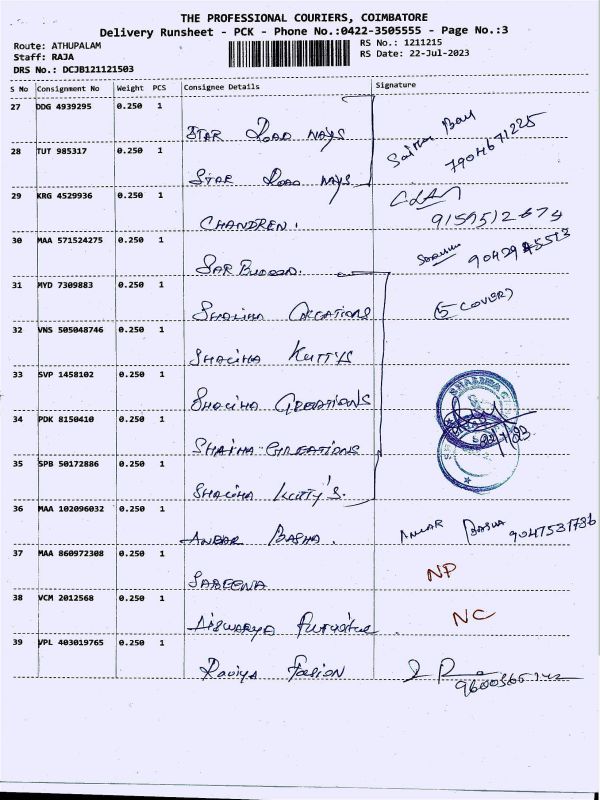 THE PROFESSIONAL COURIERS, COIMBATORE
Delivery Runsheet - PCK - Phone No.:0422-3505555 - Page No.:3
Route: ATHUPALAM RS No.: 1211215
Staff: RAJA RS Date: 22-Jul-2023
DRS No.: DCJB121121503
S No Consignment No Weight PCS Consignee Details Signature
27 DDG 4939295 0.250 1
STAR ROAD WAYS
7904671225
28 TUT 985317 0.250 1
STAR ROAD WAYS
29 KRG 4529936 0.250 1
CHANDREN.
30 MAA 571524275 0.250 1
31 MYD 7309883 0.250 1
SHALIHA CREATIONS (5 COVER)
32 VNS 505048746 0.250 1
SHALIHA KUTTYS
33 SVP 1458102 0.250 1
SHALIHA CREATIONS
34 PDK 8150410 0.250 1
SHALIHA CREATIONS
35 SPB 50172886 0.250 1
SHALIHA KUTTY'S.
36 MAA 102096032 0.250 1
ANBAR BASHA. ANBAR BASHA 9047531786
37 MAA 860972308 0.250 1
SABEENA NP
38 VCM 2012568 0.250 1
AISWARYA NC
39 VPL 403019765 0.250 1